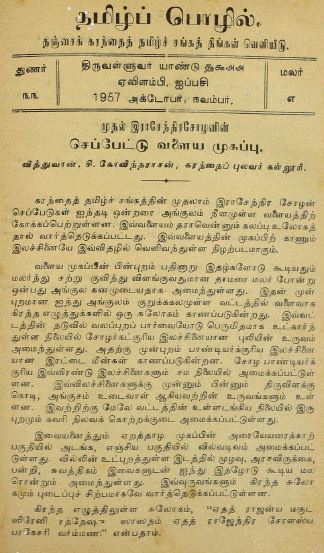 தமிழ்ப் பொழில்.
தஞ்சைக் கரந்தைத் தமிழ்ச் சங்கத் திங்கள் வெளியீடு.
துணர்
திருவள்ளுவர் யாண்டு
மலர்
ஏவிளம்பி, ஐப்பசி
௩௩.
1957 அக்டோபர், நவம்பர்.
௭
முதல் இராசேந்திரசோழனின்
செப்பேட்டு வளைய முகப்பு.
வித்துவான். சி. கோவிந்தராசன், கரந்தைப் புலவர் கல்லூரி.
கரந்தைத் தமிழ்ச் சங்கத்தின் முதலாம் இராசேந்திர சோழன்
செப்பேடுகள் ஐந்தடி ஒன்ரரை அங்குலம் நீளமுள்ள வளையத்திற்
கோக்கப்பெற்றுள்ளன. இவ்வளையம் தராவென்னும் கலப்பு உலோகத்
தால் வார்த்தெடுக்கப்பட்டது. இவ்வளையத்தின் முகப்பிற் காணும்
இலச்சினையே இவ்விதழில் வெளிவந்துள்ள நிழற்படமாகும்.
வளைய முகப்பின் பின்புறம் பதினாறு இதழ்களோடு கூடியதும்
மலர்ந்து சற்று குவிந்து விளங்குவதுமான தாமரை மலர் போன்று
ஒன்பது அங்குல கனமுடையதாக அமைந்துள்ளது. இதன் முன்
புறமான ஐந்து அங்குலம் குறுக்களவுள்ள வட்டத்தில் வளைவாக
கிரந்த எழுத்துக்களில் ஒரு சுலோகம் காணப்படுகின்றது. இவ்வட்
டத்தின் நடுவில் வலப்புறப் பார்வையோடு பெருமிதமாக உட்கார்ந்
துள்ள நிலையில் சோழர்கட்குரிய இலச்சினையான புலியின் உருவம்
அமைந்துள்ளது. அதற்கு முன்புறம் பாண்டியர்க்குரிய இலச்சினை
யான இரட்டை மீன்கள் காணப்படுகின்றன. சோழ பாண்டியர்க்
குரிய இவ்விரண்டு இலச்சினைகளும் சம நிலையில் அமைக்கப்பட்டுள்
ளன. இவ்விலச்சினைகளுக்கு முன்னும் பின்னும் திருவிளக்கு
கொடி, அங்குசம் உடைவாள் ஆகியவற்றின் உருவங்களும் உள்
ளன. இவற்றிற்கு மேலே வட்டத்தின் உள்ளடங்கிய நிலையில் இரு
புறமும் கவரி நிலவக் கொற்றக்குடை அமைக்கப்பட்டுள்ளது.
இவையனைத்தும் ஏறத்தாழ முகப்பின் அரையேவரைக்காற்
பகுதியில் அடங்க, எஞ்சிய பகுதியில் வில்வடிவம் அமைக்கப்பட்
டுள்ளது. வில்லின் உட்புறத்துள்ள இடத்தில் முழவு, அரசவிருக்கை,
பன்றி, சுவத்திகம் இவைகளுடன் ஐந்து இதழோடு கூடிய மல
ரொன்றும் அமைந்துள்ளது. இவ்வுருவங்களும் கிரந்த சுலோ
கமும் புடைப்புச் சிற்பமாகவே வார்த்தெடுக்கப்பட்டுள்ளன.
கிரந்த எழுத்திலுள்ள சுலோகம், "ஏதத் ராஜன்ய மகுட
ஸ்ரேணி ரத்நேஷு ஸாஸநம் ஏதத் ராஜேந்திர சோளஸ்ய
பரகேசரி வர்ம்மண:" என்பதாம்.